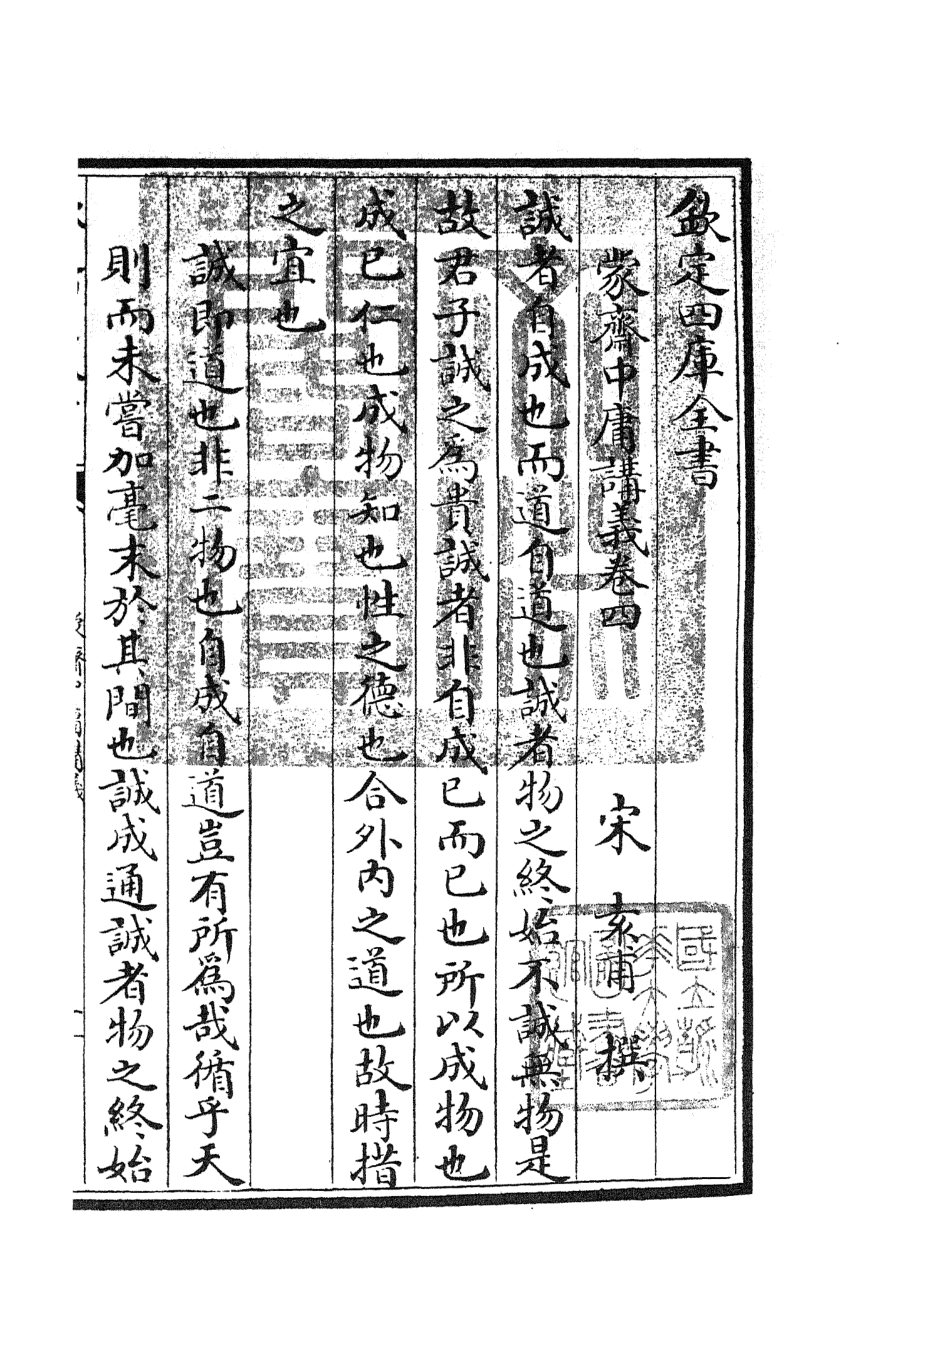 欽定四庫全書
蒙齋中庸講義卷四
宋 袁甫 撰
誠者自成也而道自道也誠者物之終始不誠無物是
故君子誠之為貴誠者非自成已而已也所以成物也
成已仁也成物知也性之德也合外内之道也故時措
之宜也
誠即道也非二物也自成自道豈有所為哉循乎天
則而未嘗加毫末於其間也誠成通誠者物之終始